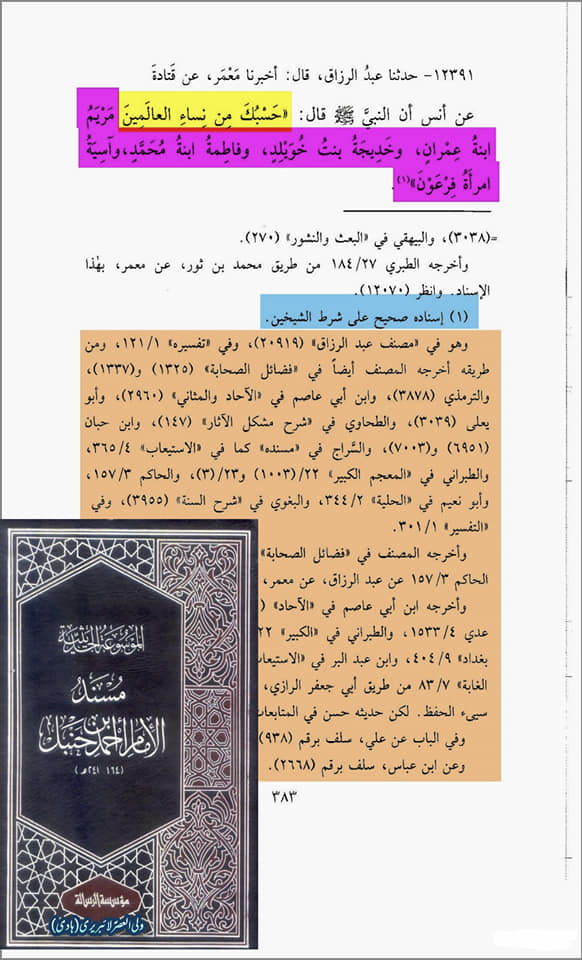 ١٢٣٩١- حدثنا عبدُ الرزاق، قال: أخبرنا مَعْمَر، عن قَتادةَ
عن أنس أن النبيَّ ﷺ قال: «حَسْبُكَ مِن نِساءِ العالَمِينَ مَرْيَمُ
ابنةُ عِمْرانٍ، وخَدِيجَةُ بنتُ خُوَيْلِدٍ، وفاطِمةُ ابنةُ مُحَمَّدٍ، وآسِيَةُ
امرأَةُ فِرْعَوْنَ»(١).
=(٣٠٣٨)، والبيهقي في «البعث والنشور» (٢٧٠).
وأخرجه الطبري ١٨٤/٢٧ من طريق محمد بن ثور، عن معمر، بهٰذا
الإسناد. وانظر (١٢٠٧٠).
(١) إسناده صحيح على شرط الشيخين.
وهو في «مصنف عبد الرزاق» (٢٠٩١٩)، وفي «تفسيره» ١٢١/١، ومن
طريقه أخرجه المصنف أيضاً في «فضائل الصحابة» (١٣٢٥) و(١٣٣٧)،
والترمذي (٣٨٧٨)، وابن أبي عاصم في «الآحاد والمثاني» (٢٩٦٠)، وأبو
يعلى (٣٠٣٩)، والطحاوي في «شرح مشكل الآثار» (١٤٧)، وابن حبان
(٦٩٥١) و(٧٠٠٣)، والسَّراج في «مسنده» كما في «الاستيعاب» ٣٦٥/٤،
والطبراني في «المعجم الكبير» ٢٢/(١٠٠٣) و٢٣/(٣)، والحاكم ١٥٧/٣،
وأبو نعيم في «الحلية» ٣٤٤/٢، والبغوي في «شرح السنة» (٣٩٥٥)، وفي
«التفسير» ٣٠١/١.
وأخرجه المصنف في «فضائل الصحابة»
الحاكم ١٥٧/٣ عن عبد الرزاق، عن معمر،
وأخرجه ابن أبي عاصم في «الآحاد» (
عدي ١٥٣٣/٤، والطبراني في «الكبير» ٢٢
بغداد» ٤٠٤/٩، وابن عبد البر في «الاستيعا
الغابة» ٨٣/٧ من طريق أبي جعفر الرازي،
سيىء الحفظ. لكن حديثه حسن في المتابعات
وفي الباب عن علي، سلف برقم (٩٣٨)
وعن ابن عباس، سلف برقم (٢٦٦٨).
٣٨٣
الموسوعة الحديثية
مسند
الإمام أحمد بن حنبل
(١٦٤ - ٢٤١ هـ)
مؤسسة الرسالة
ولی العصر لائبریری (ہادی)